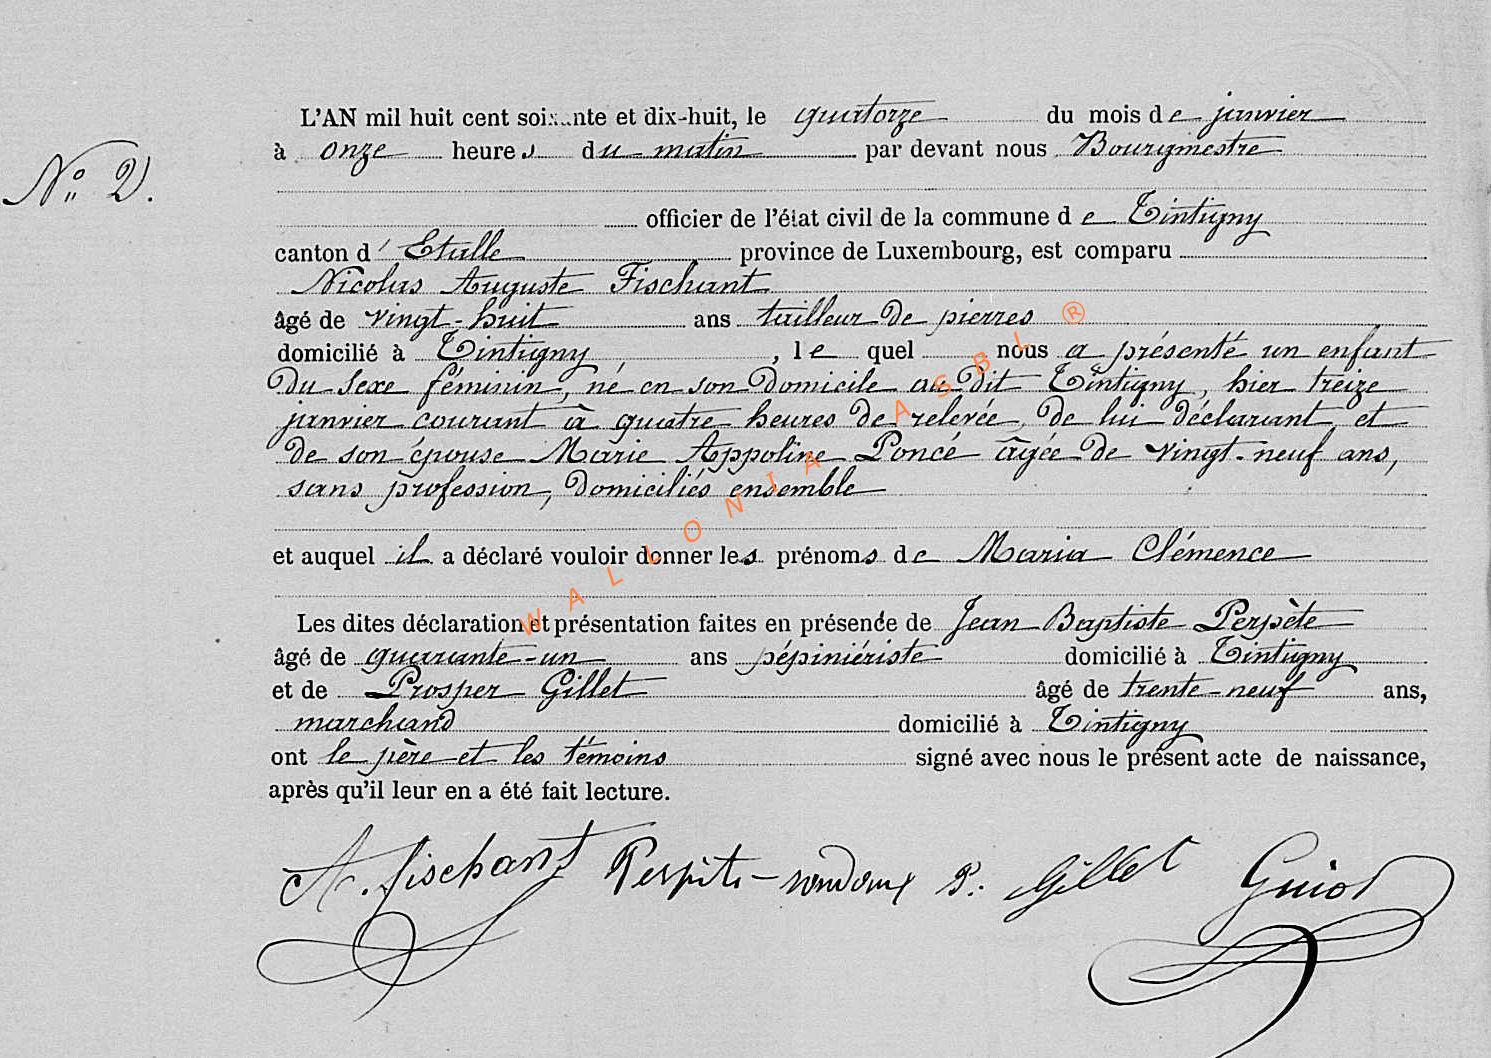 L'AN mil huit cent soixante et dix-huit, le quatorze du mois de janvier
à onze heures du matin par devant nous Bourgmestre
N° 2.
officier de l'état civil de la commune de Tintigny
canton d' Etalle province de Luxembourg, est comparu
Nicolas Auguste Fischant
âgé de vingt-huit ans tailleur de pierres
domicilié à Tintigny, le quel nous a présenté un enfant
du sexe féminin, né en son domicile au dit Tintigny, hier treize
janvier courant à quatre heures de relevée, de lui déclarant et
de son épouse Marie Appoline Poncé âgée de vingt-neuf ans,
sans profession, domiciliés ensemble
et auquel il a déclaré vouloir donner les prénoms de Maria Clémence
Les dites déclaration et présentation faites en présence de Jean Baptiste Perpète
âgé de quarante-un ans pépiniériste domicilié à Tintigny
et de Prosper Gillet âgé de trente-neuf ans,
marchand domicilié à Tintigny
ont le père et les témoins signé avec nous le présent acte de naissance,
après qu'il leur en a été fait lecture.
A. fischant Perpète P. Gillet Guiot
WALLONIA ASBL ®